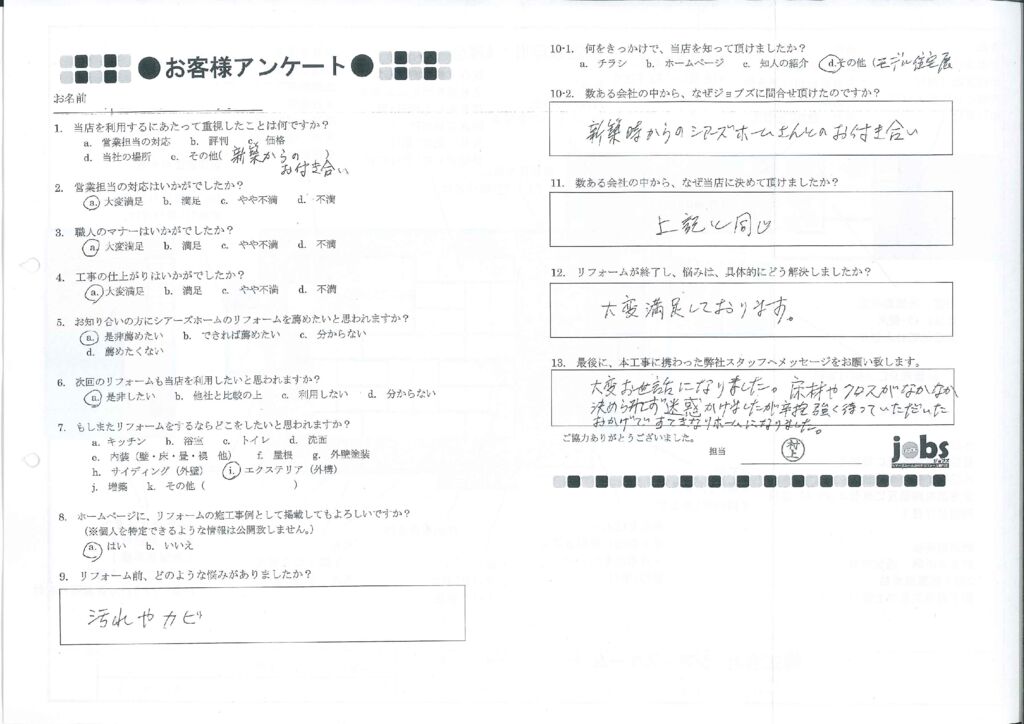 ●お客様アンケート●
お名前
1. 当店を利用するにあたって重視したことは何ですか？
a. 営業担当の対応 b. 評判 c. 価格
d. 当社の場所 e. その他( 新築からの )
お付き合い
2. 営業担当の対応はいかがでしたか？
a. 大変満足 b. 満足 c. やや不満 d. 不満
3. 職人のマナーはいかがでしたか？
a. 大変満足 b. 満足 c. やや不満 d. 不満
4. 工事の仕上がりはいかがでしたか？
a. 大変満足 b. 満足 c. やや不満 d. 不満
5. お知り合いの方にシアーズホームのリフォームを薦めたいと思われますか？
a. 是非薦めたい b. できれば薦めたい c. 分からない
d. 薦めたくない
6. 次回のリフォームも当店を利用したいと思われますか？
a. 是非したい b. 他社と比較の上 c. 利用しない d. 分からない
7. もしまたリフォームをするならどこをしたいと思われますか？
a. キッチン b. 浴室 c. トイレ d. 洗面
e. 内装（壁・床・畳・襖 他） f. 屋根 g. 外壁塗装
h. サイディング（外壁） i. エクステリア（外構）
j. 増築 k. その他（ ）
8. ホームページに、リフォームの施工事例として掲載してもよろしいですか？
（※個人を特定できるような情報は公開致しません。）
a. はい b. いいえ
9. リフォーム前、どのような悩みがありましたか？
汚れやカビ
10-1. 何をきっかけで、当店を知って頂けましたか？
a. チラシ b. ホームページ c. 知人の紹介 d. その他（モデル住宅展
10-2. 数ある会社の中から、なぜジョブズに問合せ頂けたのですか？
新築時からのシアーズホームさんとのお付き合い
11. 数ある会社の中から、なぜ当店に決めて頂けましたか？
上記と同じ
12. リフォームが終了し、悩みは、具体的にどう解決しましたか？
大変満足しております。
13. 最後に、本工事に携わった弊社スタッフへメッセージをお願い致します。
大変お世話になりました。床材やクロスがなかなか
決められず迷惑かけましたが辛抱強く待っていただいた
おかげですてきなリホームになりました。
ご協力ありがとうございました。
担当 村上
jobs
ジョブズ